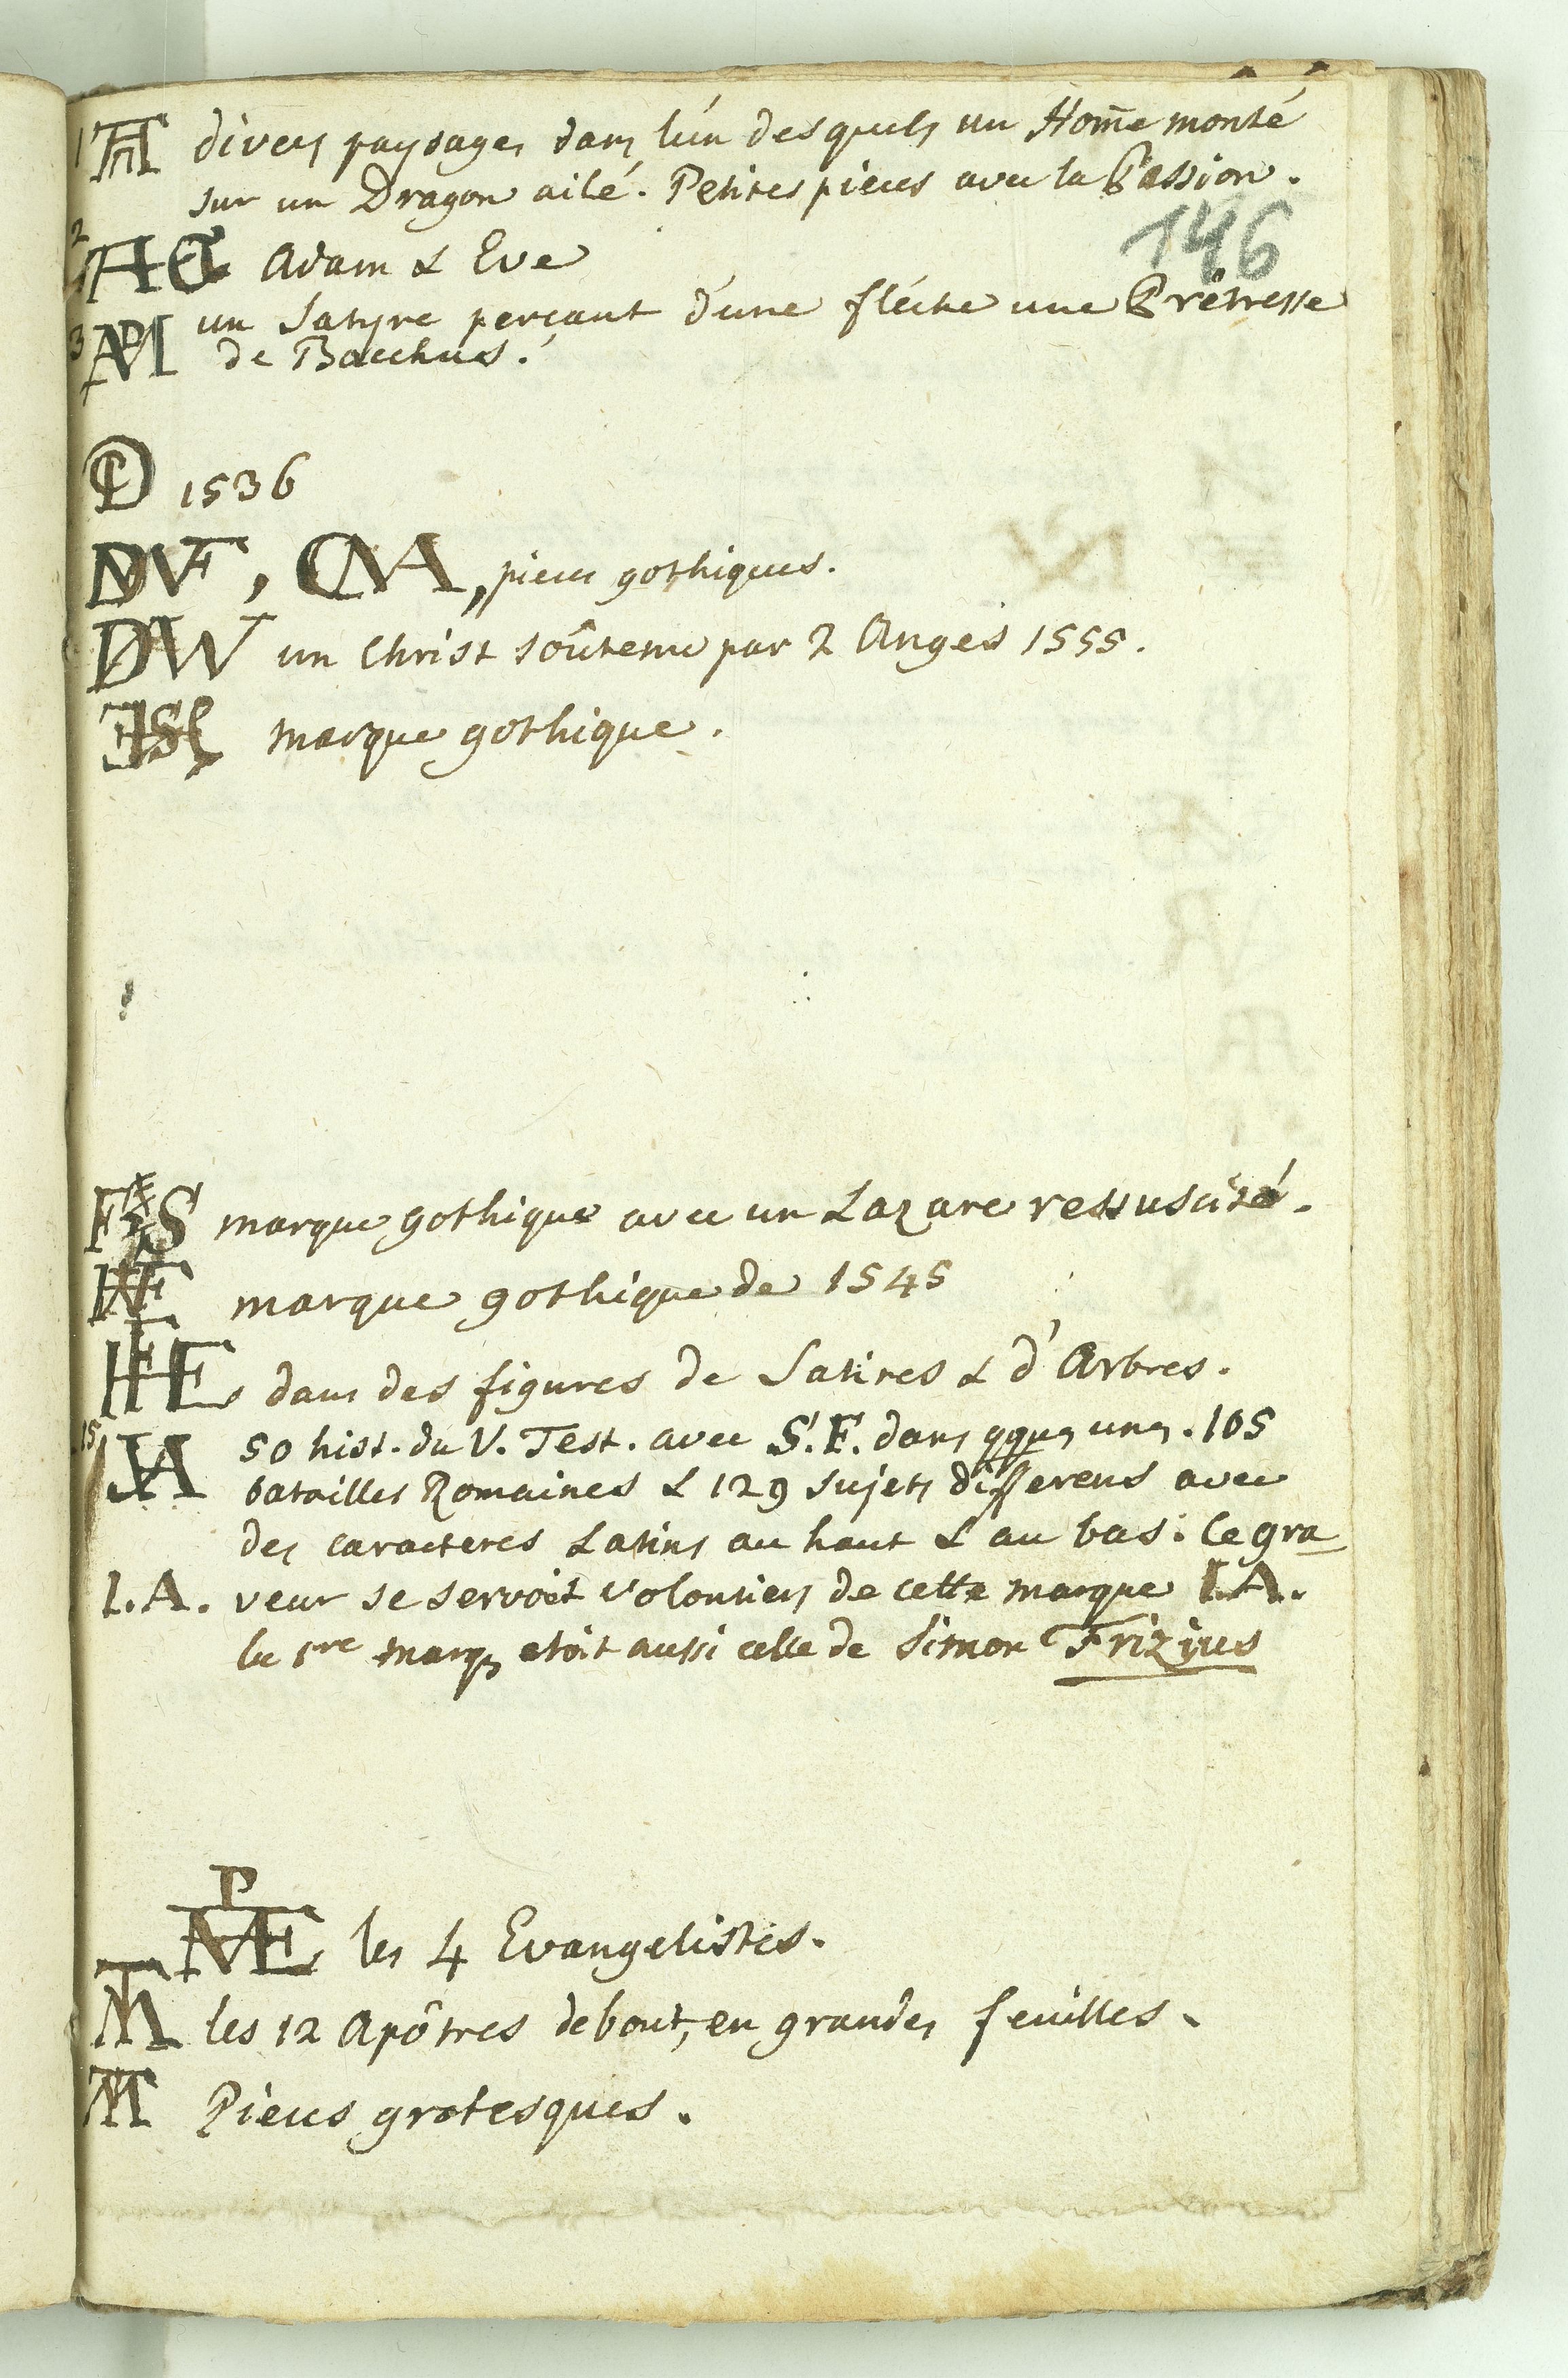 1 divers paysages dans l'un desquels un Hom̄e monté
sur un Dragon ailé. Petites pieces avec la Passion.
146
2 AG Adam & Eve
3 un Satyre perçant d'une fléche une Prêtresse
de Bacchus.
1536
DVF, CNA, pieces gothiques.
DW un Christ soûtenu par 2 Anges 1555.
marque gothique.
F S marque gothique avec un Lazare ressuscité.
marque gothique de 1545
HE dans des figures de Satires & d'Arbres.
15 JA 50 hist. du V. Test. avec S. F. dans qques unes. 105
batailles Romaines & 129 sujets differens avec
des caracteres Latins au haut & au bas. Ce gra-
I.A. veur se servoit volontiers de cette marque I.A.
la 1re marq etoit aussi celle de Simon Frizius
P
ME les 4 Evangelistes.
TM les 12 Apôtres debout, en grandes feuilles.
Pieces grotesques.